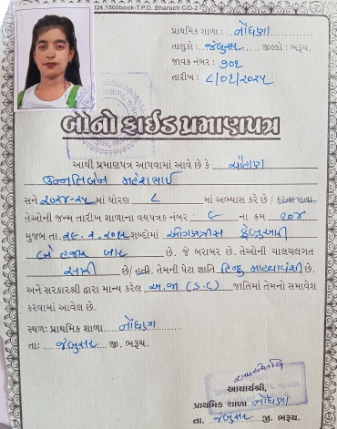 24,1500book-T.P.D. Bharuch C/D-2
પ્રાથમિક શાળા : નોંધણા
તાલુકો : જંબુસર જીલ્લો : ભરૂચ.
જાવક નંબર : ૭૦૧
તારીખ : ૮/૦૮/૨૦૨૫
બોનો ફાઈડ પ્રમાણપત્ર
આથી પ્રમાણપત્ર આપવામાં આવે છે કે ચૌહાણ
ઉન્નતિબેન મહેશભાઈ
સને ૨૦૨૪-૨૫ માં ધોરણ ૮ માં અભ્યાસ કરે છે
તેઓની જન્મ તારીખ શાળાના વયપત્રક નંબર : ૬ ના ક્રમ
મુજબ તા. ૨૯.૨.૨૦૧૨ શબ્દોમાં ઓગણત્રીસ ફેબ્રુઆરી
બે હજાર બાર છે. જે બરાબર છે. તેઓની ચાલચલગત
સારી છે/ હતી. તેમની પેટા જ્ઞાતિ હિન્દુ છે.
અને સરકારશ્રી દ્વારા માન્ય કરેલ અ.જા (S.C) જાતિમાં તેમનો સમાવેશ
કરવામાં આવેલ છે.
સ્થળ: પ્રાથમિક શાળા નોંધણા
તા: જંબુસર જી. ભરૂચ.
આચાર્યશ્રી,
પ્રાથમિક શાળા નોંધણા
તા. જંબુસર જી. ભરૂચ.